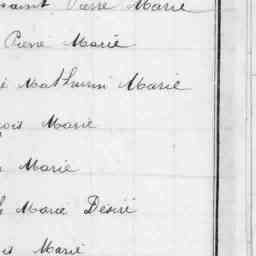 Pierre Marie
Pierre Marie
Mathurin Marie
Marie
Marie
Marie Désiré
Marie